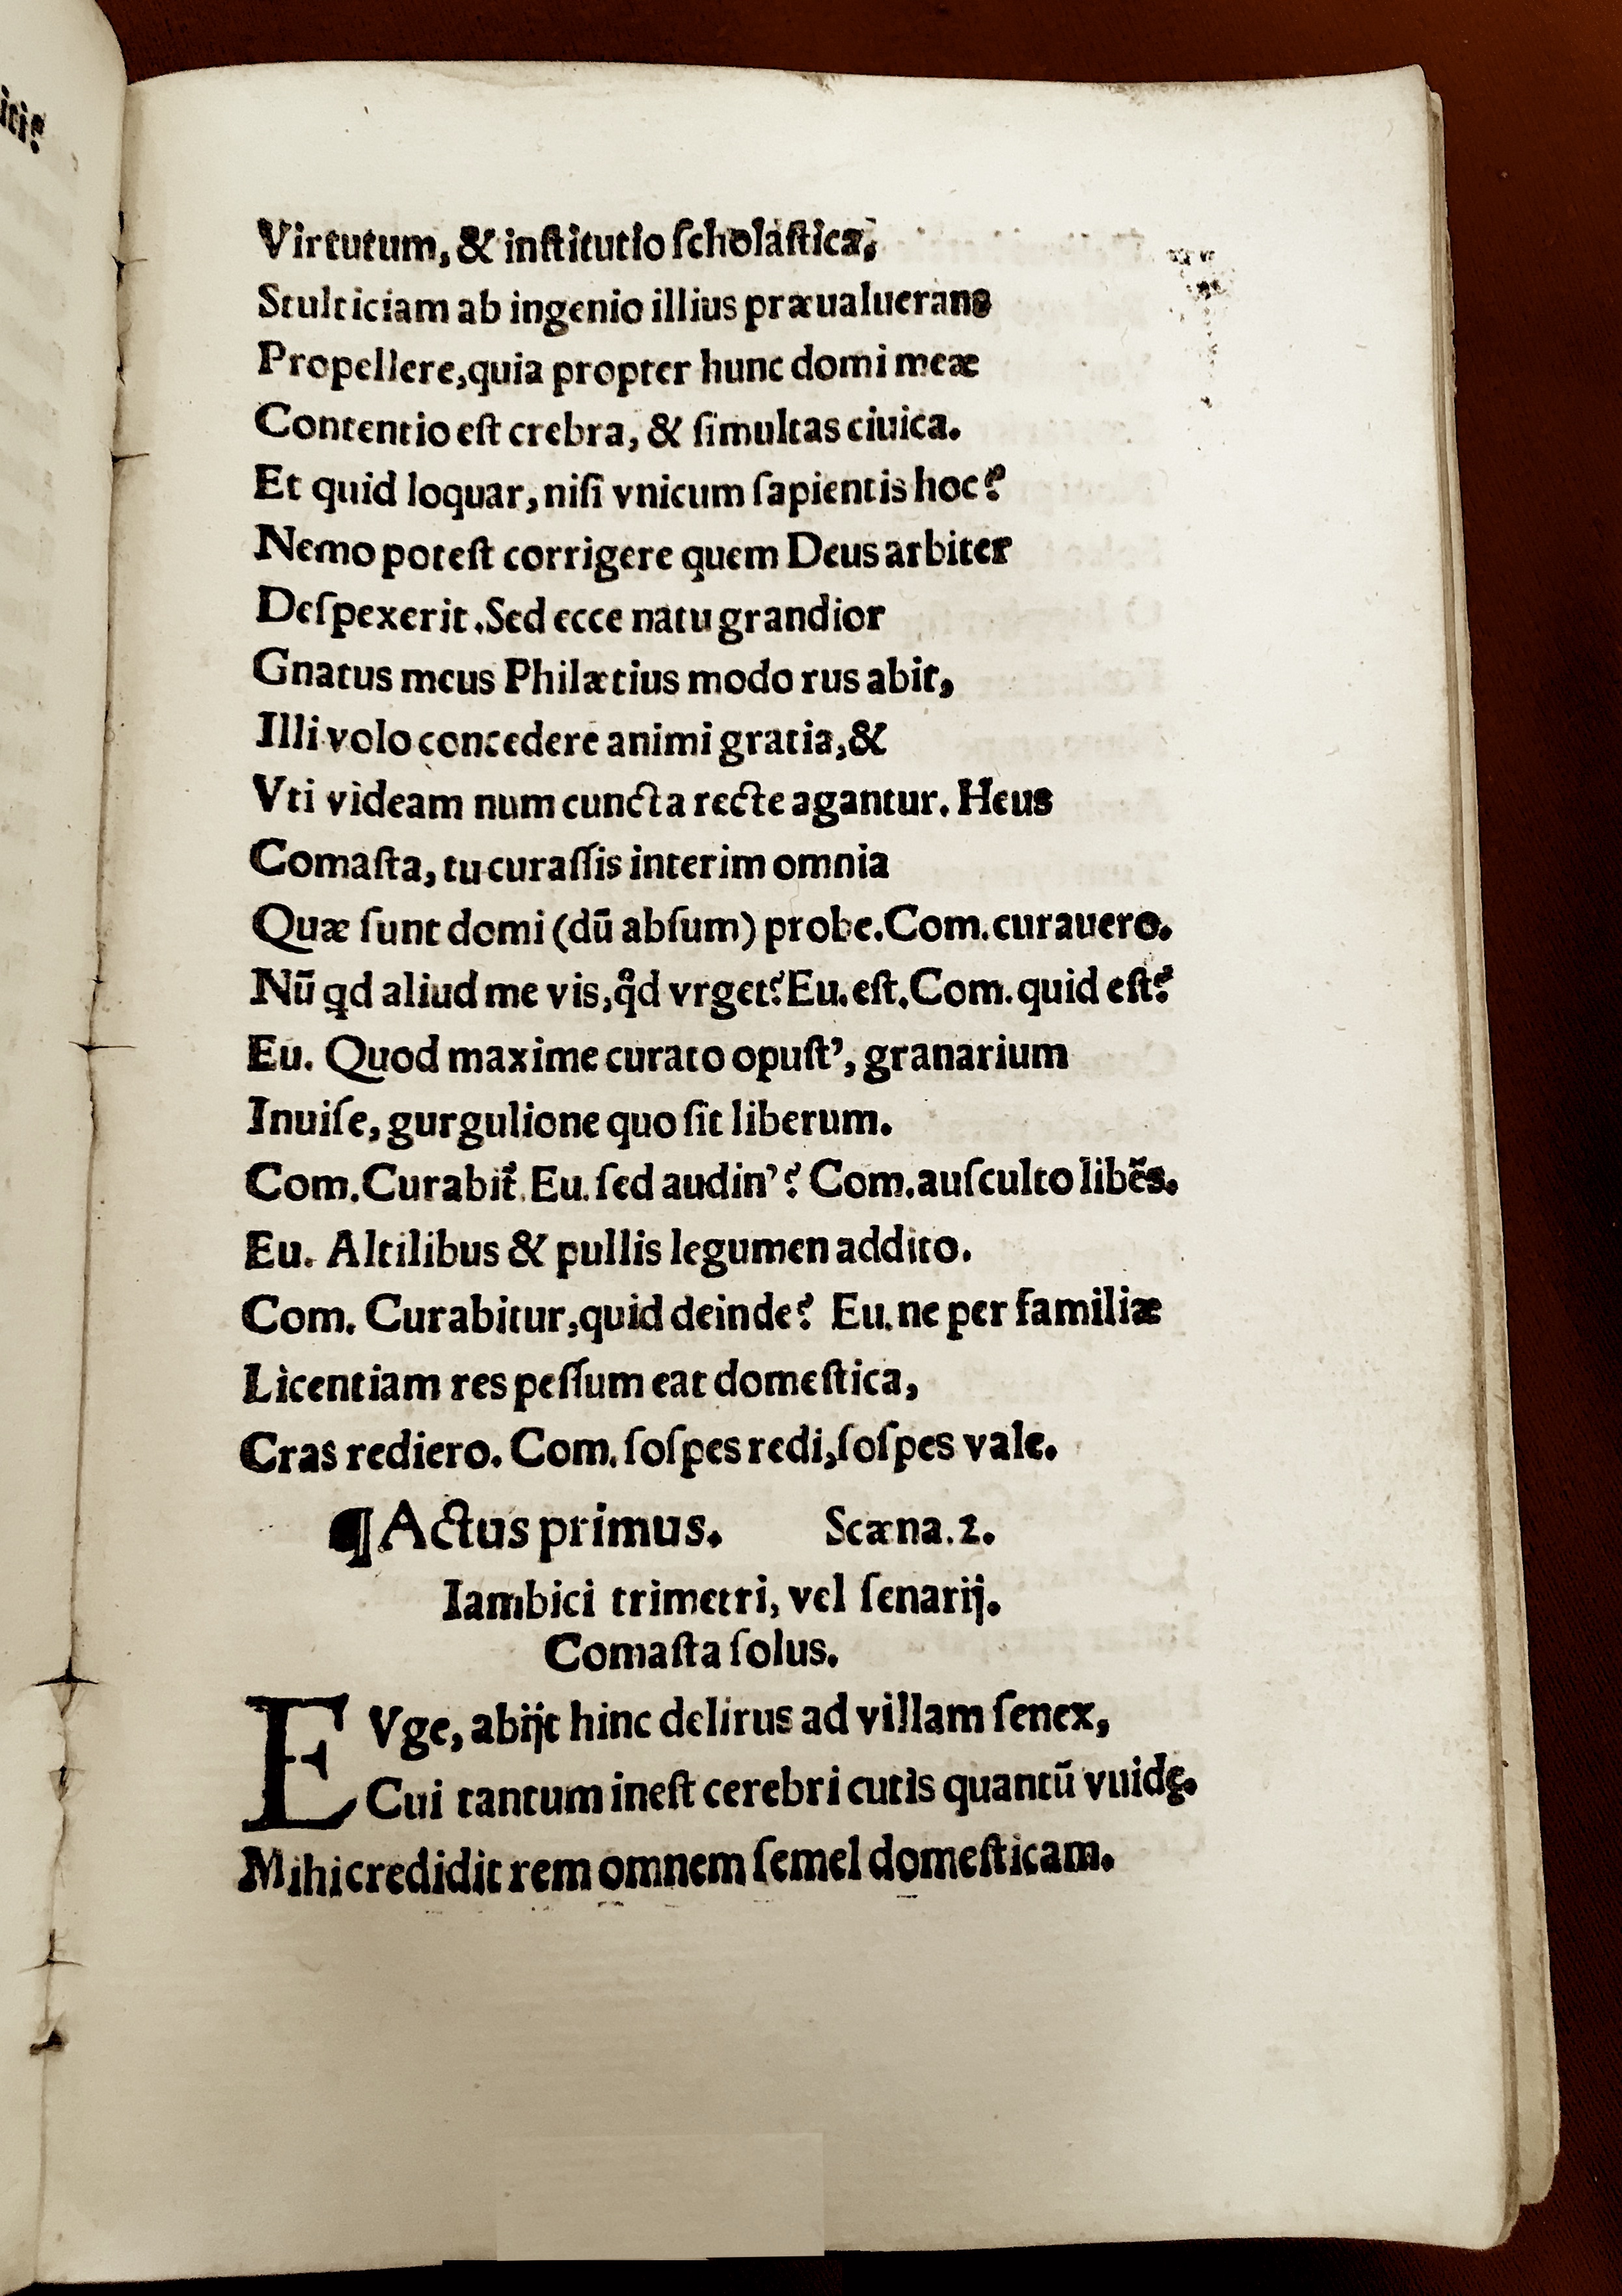 iti?
Virtutum, & inſtitutio ſcholaſtica,
Stulticiam ab ingenio illius præualuerant
Propellere,quia propter hunc domi meæ
Contentio eſt crebra, & ſimultas ciuica.
Et quid loquar, niſi vnicum ſapientis hoc?
Nemo poteſt corrigere quem Deus arbiter
Deſpexerit.Sed ecce natu grandior
Gnatus meus Philætius modo rus abit,
Illi volo concedere animi gratia,&
Vti videam num cuncta recte agantur. Heus
Comaſta, tu curaſſis interim omnia
Quæ ſunt domi (dū abſum) probe.Com.curauero.
Nū qd aliud me vis,qͦd vrget?Eu.eſt.Com.quid eſt?
Eu. Quod maxime curato opuſt’, granarium
Inuiſe, gurgulione quo ſit liberum.
Com.Curabit̃.Eu.ſed audin’? Com.auſculto libēs.
Eu. Altilibus & pullis legumen addito.
Com. Curabitur,quid deinde? Eu.ne per familiæ
Licentiam res peſſum eat domeſtica,
Cras rediero. Com.ſoſpes redi,ſoſpes vale.
¶Actus primus. Scæna.2.
Iambici trimetri, vel ſenarij.
Comaſta ſolus.
EVge, abijt hinc delirus ad villam ſenex,
Cui tantum ineſt cerebri cutis quantū vuidę.
Mihi credidit rem omnem ſemel domeſticam.